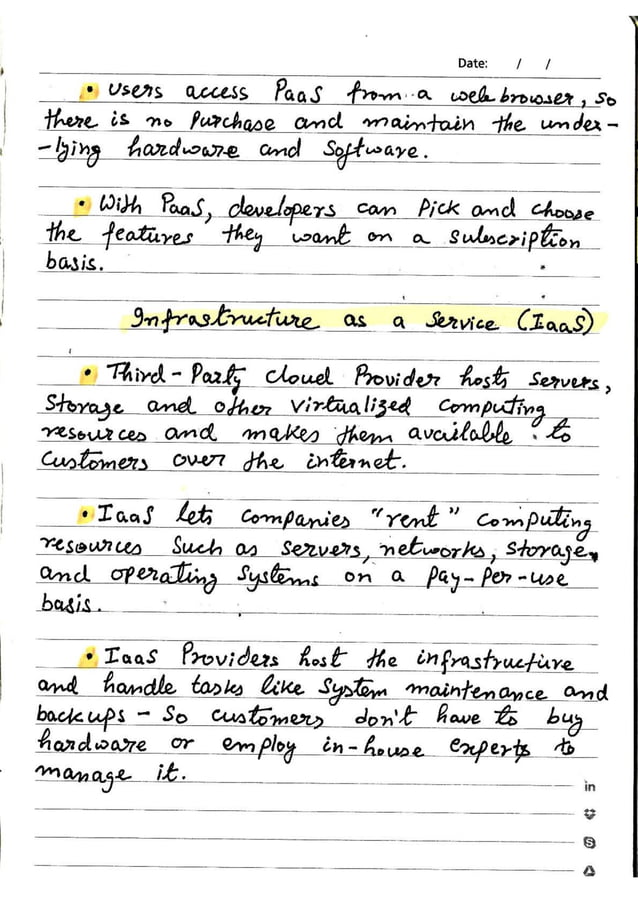 Date: / /
• Users access PaaS from a web browser, so
there is no Purchase and maintain the under-
-lying hardware and Software.
• With PaaS, developers can Pick and choose
the features they want on a subscription
basis.
Infrastructure as a Service (IaaS)
• Third-Party cloud Provider hosts Servers,
Storage and other virtualized computing
resources and makes them available to
Customers over the internet.
• IaaS lets companies "rent" computing
resources Such as servers, networks, storage,
and operating systems on a pay-per-use
basis.
• IaaS Providers host the infrastructure
and handle tasks like System maintenance and
backups - So customers don't have to buy
hardware or employ in-house experts to
manage it.
in